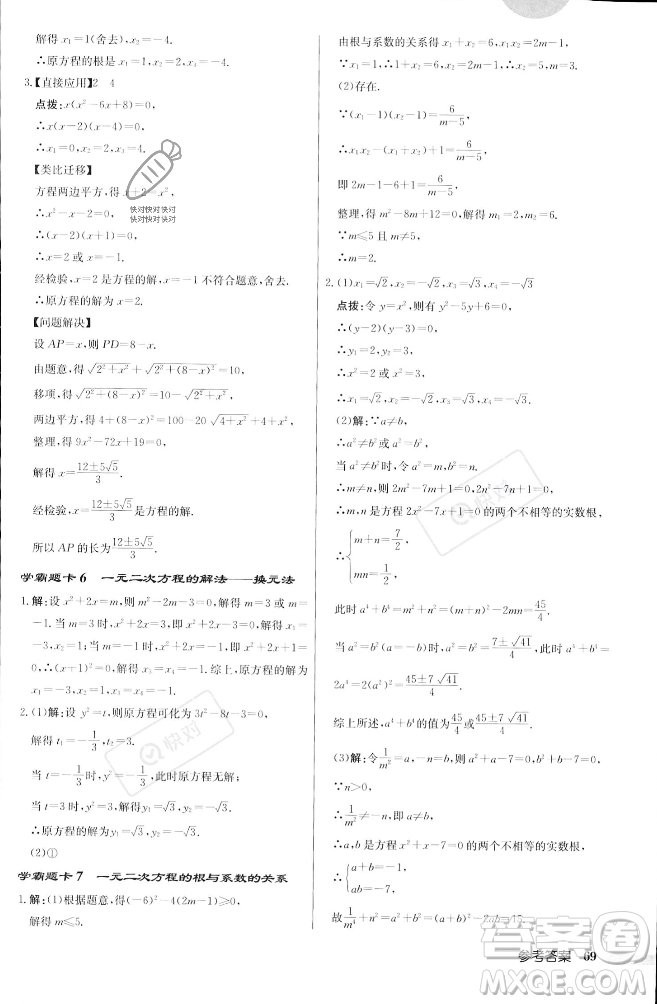 解得 x₁=1(舍去),x₂=-4.
∴原方程的根是 x₁=1,x₂=-4.
3.【直接应用】2 4
点拨:x(x²-6x+8)=0,
∴x(x-2)(x-4)=0,
∴x₁=0,x₂=2,x₃=4.
【类比迁移】
方程两边平方,得 x+2=x²,
∴x²-x-2=0,
∴(x-2)(x+1)=0,
∴x=2 或 x=-1.
经检验,x=2 是方程的解,x=-1 不符合题意,舍去.
∴原方程的解为 x=2.
【问题解决】
设 AP=x,则 PD=8-x.
由题意,得 √(2²+x²)+√(2²+(8-x)²)=10,
移项,得 √(2²+(8-x)²)=10-√(2²+x²),
两边平方,得 4+(8-x)²=100-20√(4+x²)+4+x²,
整理,得 9x²-72x+19=0,
解得 x=(12±5√5)/3.
经检验,x=(12±5√5)/3 是方程的解.
所以 AP 的长为 (12±5√5)/3.
学霸题卡6 一元二次方程的解法——换元法
1.解:设 x²+2x=m,则 m²-2m-3=0,∴m=3 或 m=
-1.当 m=3 时,x²+2x-3=0,∴x₁=-3,x₂=
1.当 m=-1 时,x²+2x=-1,∴x²+2x+1=
0,∴(x+1)²=0,∴x₃=x₄=-1.综上,原方程的解为
x₁=-3,x₂=1,x₃=x₄=-1.
2.(1)解:设 y²=t,则原方程可化为 3t²-8t-3=0,
解得 t₁=-1/3,t₂=3.
当 t=-1/3 时,y²=-1/3,此时原方程无解.
当 t=3 时,y²=3,解得 y₁=√3,y₂=-√3.
∴原方程的解为 y₁=√3,y₂=-√3.
(2)①
学霸题卡7 一元二次方程的根与系数的关系
1.解:(1)根据题意,得(-6)²-4(2m-1)≥0,
解得 m≤5.
由根与系数的关系得 x₁+x₂=6,x₁x₂=2m-1,
∵x₁=1,∴1+x₂=6,x₂=2m-1,∴x₂=5,m=3.
(2)存在.
∵(x₁-1)(x₂-1)=6/(m-5),
∴x₁x₂-(x₁+x₂)+1=6/(m-5),
即 2m-1-6+1=6/(m-5),
整理,得 m²-8m+12=0,解得 m₁=2,m₂=6.
∵m≤5 且 m≠5,
∴m=2.
2.(1)x₁=√2,x₂=-√2,x₃=√3,x₄=-√3
点拨:令 y=x²,则有 y²-5y+6=0,
∴(y-2)(y-3)=0,
∴y₁=2,y₂=3,
∴x²=2 或 3,
∴x₁=√2,x₂=-√2,x₃=√3,x₄=-√3.
(2)解:∵a≠b,
∴a²≠b² 或 a²=b².
当 a²≠b² 时,令 a²=m,b²=n.
∴m≠n,则 2m²-7m+1=0,2n²-7n+1=0,
∴m,n 是方程 2x²-7x+1=0 的两个不相等的实数根,
∴{m+n=7/2,
mn=1/2.
此时 a⁴+b⁴=m²+n²=(m+n)²-2mn=45/4.
当 a²=b²(a=-b)时,a²=b²=(7±√41)/4,此时 a⁴+b⁴=
2a⁴=2(a²)²=(45±7√41)/4.
综上所述,a⁴+b⁴ 的值为 45/4 或 (45±7√41)/4.
(3)解:令 1/m²=a,-n=b,则 a²+a-7=0,b²+b-7=0.
∵n>0,
∴1/m²≠-n,即 a≠b,
∴a,b 是方程 x²+x-7=0 的两个不相等的实数根,
∴{a+b=-1,
ab=-7.
故 1/m⁴+n²=a²+b²=(a+b)²-2ab=15.
快对快对快对
快对快对快对
快对
快对
参考答案 69
答案圈